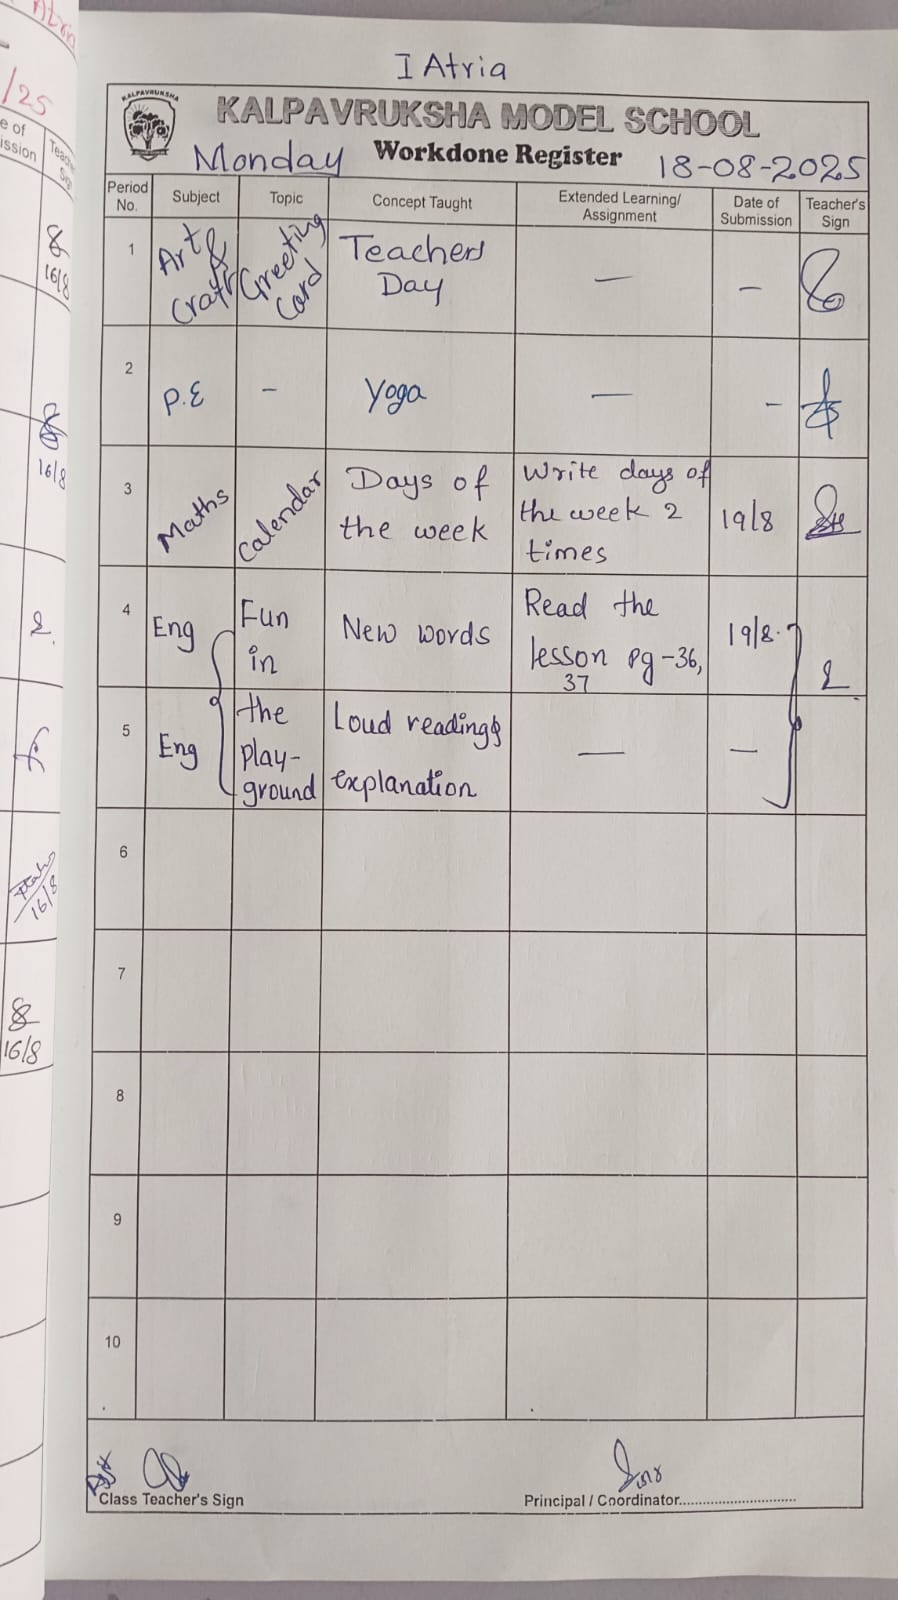 Atria
/25
e of
ission
Teach
Sig
16/8
16/8
16/8
16/8
I Atria
KALPAVRUKSHA
KALPAVRUKSHA MODEL SCHOOL
Monday Workdone Register 18-08-2025
Period No. Subject Topic Concept Taught Extended Learning/ Assignment Date of Submission Teacher's Sign
1 Art & Craft Greeting Card Teachers Day — -
2 P.E - Yoga — -
3 Maths Calendar Days of the week Write days of the week 2 times 19/8
4 Eng Fun in New words Read the lesson pg-36, 37 19/8.
5 Eng the play-ground Loud reading & explanation — —
6
7
8
9
10
Class Teacher's Sign
Principal / Coordinator..............................